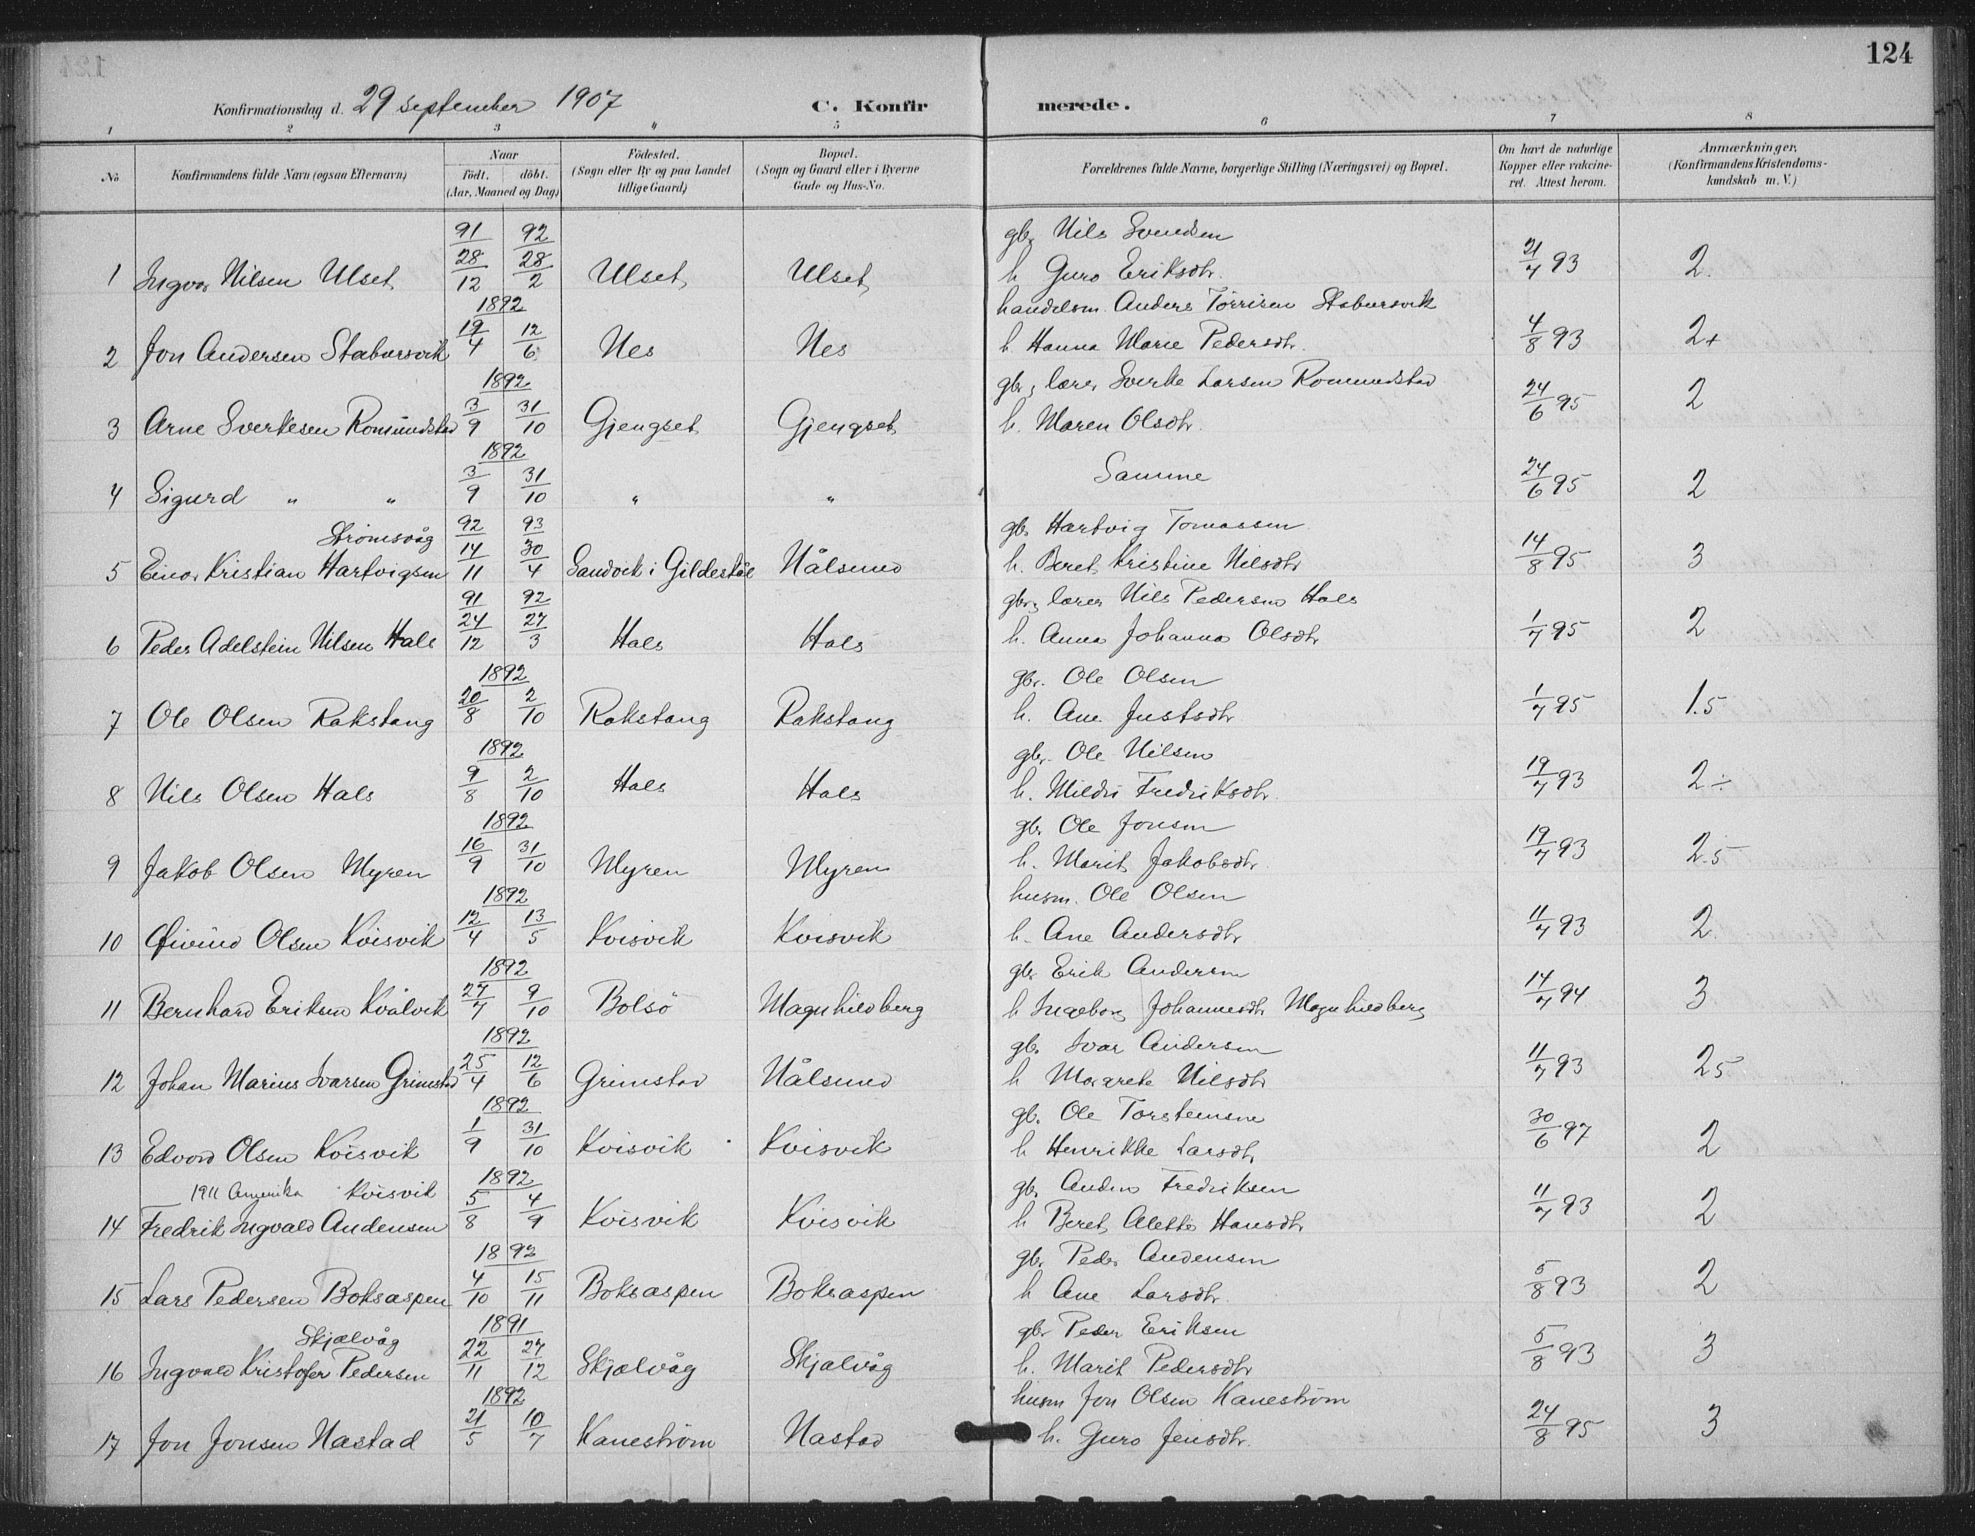 124
Konfirmationsdag d. 29 september 1907 C. Konfirmerede.
1 2 3 " 5 6 7 8
No. Konfirmandens fulde Navn (ogsaa Efternavn)
Naar
födt. döbt.
(Aar, Maaned og Dag)
Födested.
(Sogn eller By og paa Landet
tillige Gaard)
Bopæl.
(Sogn og Gaard eller i Byerne
Gade og Hus-No.
Forældrenes fulde Navne, borgerlige Stilling (Næringsvei) og Bopæl.
Om havt de naturlige
Kopper eller vakcine-
ret. Attest herom.
Anmærkninger,
(Konfirmandens Kristendoms-
kundskab m. V.)
91 92 gbr Nils Svendsen
1 Ingvar Nilsen Ulset 28/12 28/2 Ulset Ulset h. Guro Eriksdtr. 21/7 93 2.
1892 handelsm. Anders Tørrisen Stabursvik
2 Jon Andersen Stabursvik 19/4 12/6 Nes Nes h. Hanna Marie Pedersdtr. 4/8 93 2+
1892 gbr, lærer Sverke Larsen Romundstad
3 Arne Sverkesen Romundstad 3/9 31/10 Gjengset Gjengset h. Maren Olsdtr. 24/6 95 2
1892
4 Sigurd " " 3/9 31/10 " " Samme 24/6 95 2
Strømsvåg 92 93 gbr Hartvig Tomassen
5 Einar Kristian Hartvigsen 14/11 30/4 Sandvik i Gildeskål Nålsund h. Beret Kristine Nilsdtr 14/8 95 3
91 92 gbr, lærer Nils Pedersen Hals
6 Peder Adelstein Nilsen Hals 24/12 27/3 Hals Hals h. Anna Johanna Olsdtr 1/7 95 2
1892 gbr. Ole Olsen
7 Ole Olsen Rakstang 20/8 2/10 Rakstang Rakstang h. Ane Justsdtr 1/7 95 1.5
1892 gbr. Ole Nilsen
8 Nils Olsen Hals 9/8 2/10 Hals Hals h. Mildri Fredriksdtr. 19/7 93 2÷
1892 gbr. Ole Jonsen
9 Jakob Olsen Myren 16/9 31/10 Myren Myren h. Marit Jakobsdtr. 19/7 93 2.5
1892 husm. Ole Olsen
10 Øivind Olsen Kvisvik 12/4 13/5 Kvisvik Kvisvik h. Ane Andersdtr 11/7 93 2.
1892 gbr Erik Andersen
11 Bernhard Eriksen Kvålvik 27/7 9/10 Bolsö Magnhildberg h Ingeborg Johannesdtr Magnhildberg 14/7 94 3
1892 gbr. Ivar Andersen
12 Johan Marius Ivarsen Grimstad 25/4 12/6 Grimstad Nålsund h Margrete Nilsdtr 11/7 93 25
1892 gbr. Ole Torsteinsen
13 Edvard Olsen Kvisvik 1/9 31/10 Kvisvik Kvisvik h Henrikke Larsdtr 30/6 97 2
1911 Amerika Kvisvik 1892 gbr. Anders Fredriksen
14 Fredrik Ingvald Andersen 5/8 4/9 Kvisvik Kvisvik h Beret Alette Hansdtr 11/7 93 2
1892 gbr Peder Andersen
15 Lars Pedersen Boksaspen 4/10 15/11 Boksaspen Boksaspen h Ane Larsdtr. 5/8 93 2
Skjælvåg 1891 gbr Peder Eriksen
16 Ingvald Kristofer Pedersen 22/11 27/12 Skjælvåg Skjælvåg h. Marit Pedersdtr 5/8 93 3
1892 husm Jon Olsen Kanestrøm
17 Jon Jonsen Nastad 21/5 10/7 Kanestrøm Nastad h. Guro Jensdtr. 24/8 95 3